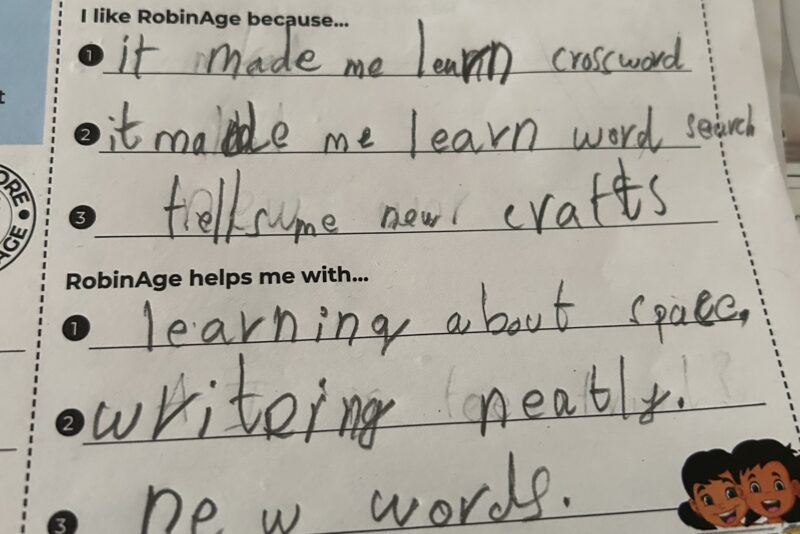 I like RobinAge because...
1 it made me learn crossword
2 it made me learn word search
3 tells me new crafts
RobinAge helps me with...
1 learning about space.
2 writeing neatly.
3 new words.